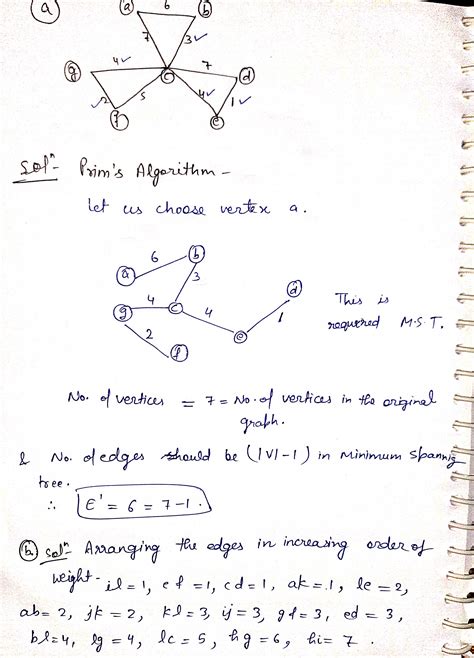 (a)
a 6 b
7 3 ✓
g 4 ✓ C 7 d
✓ 2 5 4 ✓ 1 ✓
f e
Solⁿ- Prim's Algorithm -
Let us choose vertex a.
6 b
a 3 d
g 4 c 4 1
2 e
f
This is
required M.S.T.
No. of vertices = 7 = No. of vertices in the original
graph.
& No. of edges should be (|V|-1) in Minimum Spanning
tree.
∴ E' = 6 = 7-1.
(b) Solⁿ- Arranging the edges in increasing order of
weight - il=1, ef=1, cd=1, ak=1, le=2,
ab=2, jk=2, kl=3, ij=3, gf=3, ed=3,
bl=4, lg=4, lc=5, hg=6, hi=7.